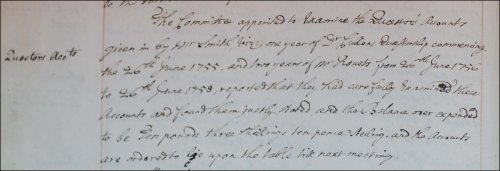 The Committee appointed to Examine the Questors Accounts
Questors Accts
given in by Mr Smith, viz: one year of Dr Cullens Questorship commencing
the 26th June 1755. and two year of Mr Rouets from 26th June 1756
to 26th June 1758. reported that they had carefully Examined these
Accounts and found them justly stated, and the Balance over expended
to be Ten pounds three shillings ten pence Sterling. and the Accounts
are ordered to lye upon the table till next meeting.